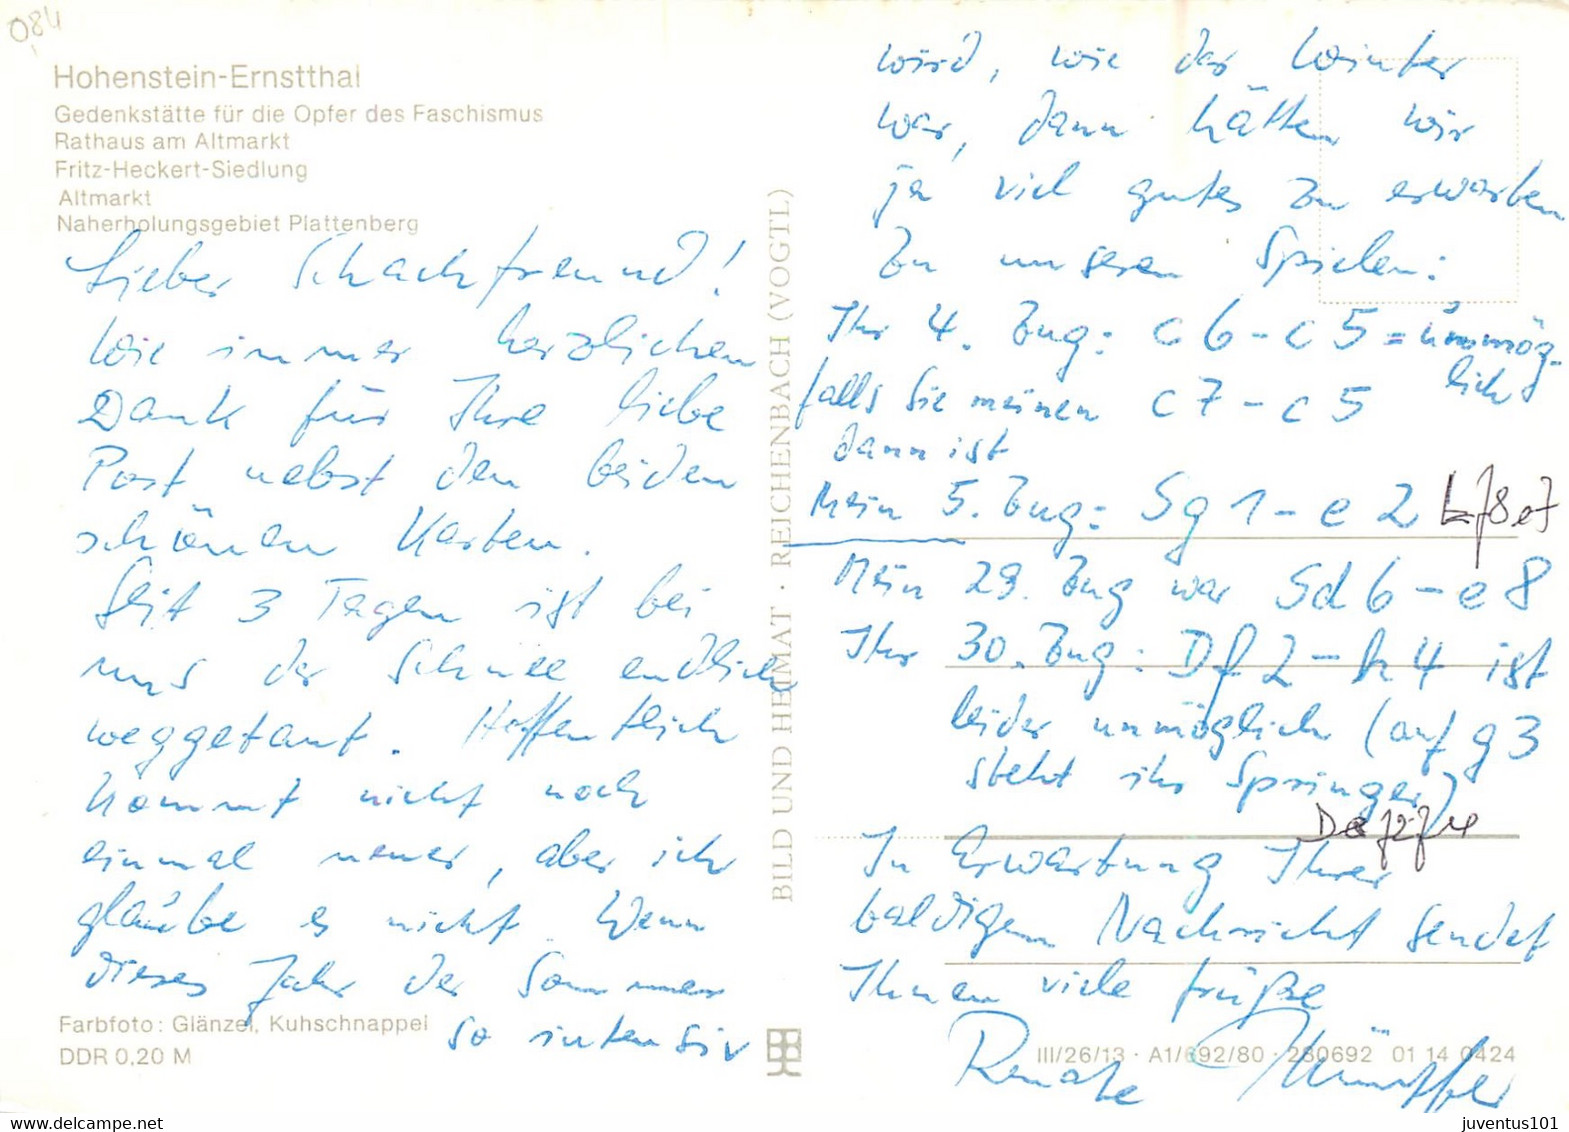 084
Hohenstein-Ernstthal
Gedenkstätte für die Opfer des Faschismus
Rathaus am Altmarkt
Fritz-Heckert-Siedlung
Altmarkt
Naherholungsgebiet Plattenberg
Lieber Schachfreund!
Wie immer herzlichen
Dank für Ihre liebe
Post nebst den beiden
schönen Karten.
Seit 3 Tagen ist bei
uns der Schnee endlich
weggetaut. Hoffentlich
kommt nicht noch
einmal neuer, aber ich
glaube es nicht. Wenn
dieses Jahr der Sommer
so intensiv
Farbfoto: Glänzel, Kuhschnappel
DDR 0,20 M
BILD UND HEIMAT · REICHENBACH (VOGTL)
wird, wie der Winter
war, dann hätten wir
ja viel gutes zu erwarten
Zu unseren Spielen:
Ihr 4. Zug: c6-c5 = unmög-
lich
falls Sie meinen c7-c5
dann ist
Mein 5. Zug: Sg1-e2 Lf8e7
Mein 29. Zug war Sd6-e8
Ihr 30. Zug: Df2-h4 ist
leider unmöglich (auf g3
steht ihr Springer)
In Erwartung Ihrer
baldigen Nachricht sendet
Ihnen viele Grüße
Renate
III/26/13 · A1/692/80 · 280692 01 14 0424
juventus101